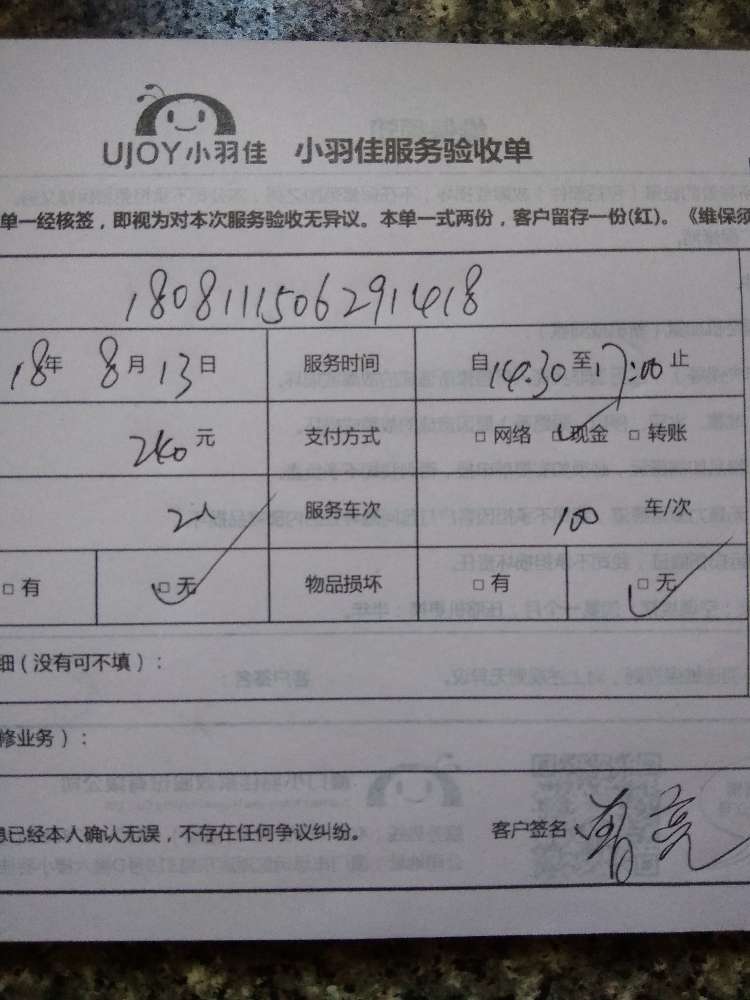 UJOY小羽佳 小羽佳服务验收单
单一经核签，即视为对本次服务验收无异议。本单一式两份，客户留存一份(红)。《维保须
1808111506291418
18年 8月13日 服务时间 自14.30至17:00止
240元 支付方式 □ 网络 □ 现金 □ 转账
2人 服务车次 车/次
□ 有 □ 无 物品损坏 □ 有 □ 无
细(没有可不填)：
修业务)：
息已经本人确认无误，不存在任何争议纠纷。 客户签名：